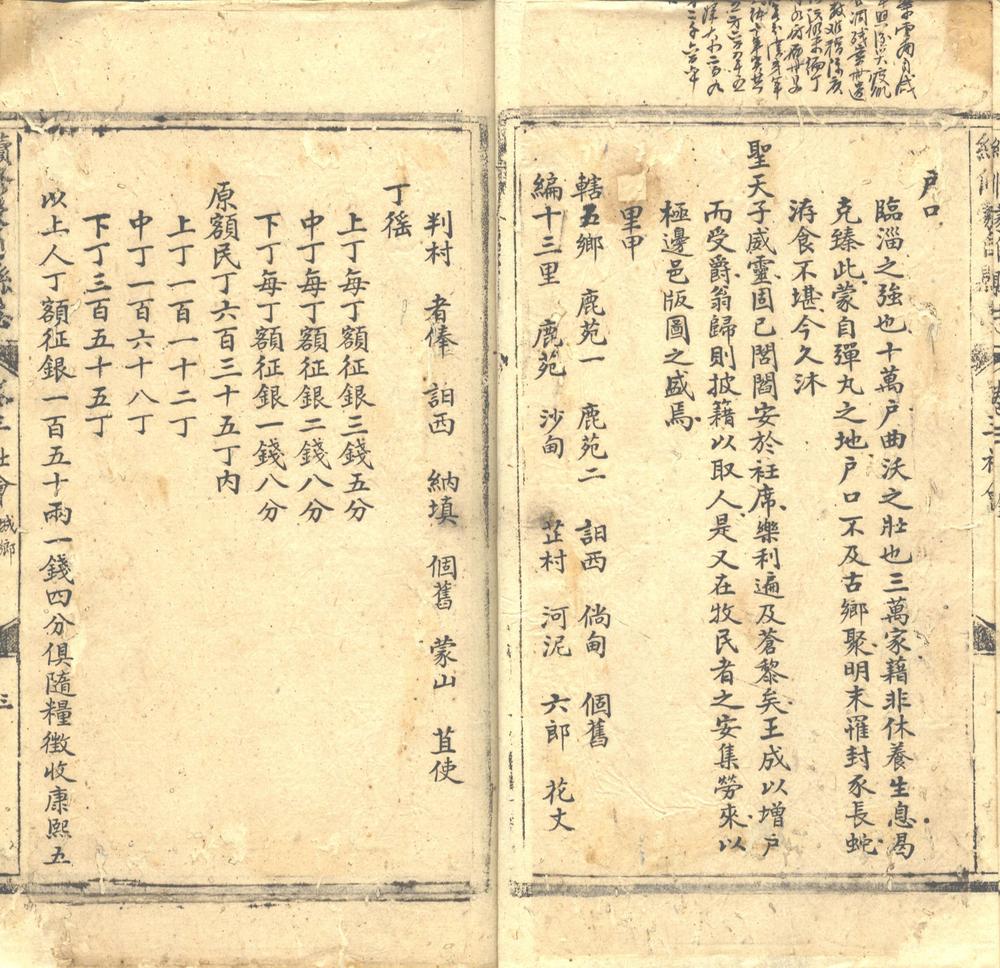 户口
臨淄之強也十萬戶曲沃之壯也三萬家藉非休養生息曷
克臻此蒙自彈丸之地戶口不及古鄉聚明末罹封豕長蛇
洊食不堪今久沐
聖天子威靈固已閭閻安於衽席樂利遍及蒼黎矣王成以增戶
而受爵翁歸則披籍以取人是又在牧民者之安集勞來以
極邊邑版圖之盛焉
里甲
轄五鄉 鹿苑一 鹿苑二 詚西 倘甸 個舊
編十三里 鹿苑 沙甸 芷村 河泥 六郎 花丈
判村 者俸 詚西 納填 個舊 蒙山 苴使
丁徭
上丁每丁額征銀三錢五分
中丁每丁額征銀二錢八分
下丁每丁額征銀一錢八分
原額民丁六百三十五丁内
上丁一百一十二丁
中丁一百六十八丁
下丁三百五十五丁
以上人丁額征銀一百五十兩一錢四分俱隨糧徴收康熙五
社會
城鄉
三